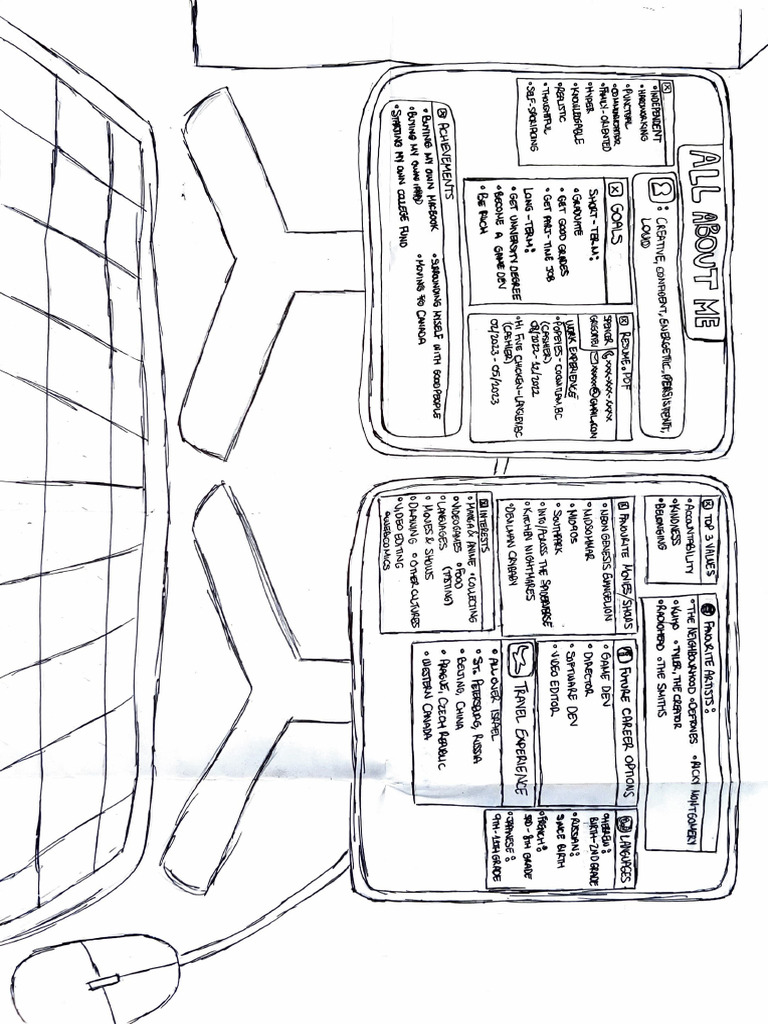 ALL ABOUT ME
: CREATIVE, CONFIDENT, ENERGETIC, PERSISTENT,
LOUD
•INDEPENDENT
•HARDWORKING
•PUNCTUAL
•COMMUNICATOR
•FAMILY-ORIENTED
•HYPER
•KNOWLEDGABLE
•REALISTIC
•THOUGHTFUL
•SELF-SACRIFICING
GOALS
SHORT-TERM:
•GRADUATE
•GET GOOD GRADES
•GET PART-TIME JOB
LONG-TERM:
•GET UNIVERSITY DEGREE
•BECOME A GAME DEV
•BE RICH
RESUME.PDF
SPENCER XXX-XXX-XXXX
XXXXX@GMAIL.COM
WORK EXPERIENCE
•POPEYES-COQUITLAM, BC
(CASHIER)
-12/2022
•HI FIVE CHICKEN-LANGLEY, BC
(CASHIER)
02/2023-05/2023
ACHIEVEMENTS
•BUYING MY OWN MACBOOK
•BUYING MY OWN
•STARTING MY OWN COLLEGE FUND
•SURROUNDING MYSELF WITH GOOD PEOPLE
•MOVING TO CANADA
TOP 3 VALUES
•ACCOUNTABILITY
•KINDNESS
•BELONGING
FAVOURITE ARTISTS:
•THE NEIGHBOURHOOD •DEFTONES •RICKY MONTGOMERY
•TYLER, THE CREATOR
•RADIOHEAD •THE SMITHS
FAVOURITE MOVIES/SHOWS
•NEON GENESIS EVANGELION
•MIDSOMMAR
•MID90S
•SOUTHPARK
•INTO/ACROSS THE SPIDERVERSE
•KITCHEN NIGHTMARES
•DEVILMAN CRYBABY
FUTURE CAREER OPTIONS
•GAME DEV
•DIRECTOR
•SOFTWARE DEV
•VIDEO EDITOR
LANGUAGES
•HEBREW:
BIRTH-2ND GRADE
•RUSSIAN:
SINCE BIRTH
•FRENCH:
3RD-8TH GRADE
•JAPANESE:
9TH-11TH GRADE
INTERESTS
•MANGA & ANIME •COLLECTING
•VIDEOGAMES •FOOD
•LANGUAGES (TASTING)
•MOVIES & SHOWS
•DRAWING •OTHER CULTURES
•VIDEO EDITING
•WEBCOMICS
TRAVEL EXPERIENCE
•ALL OVER ISRAEL
•ST. PETERSBURG, RUSSIA
•BEIJING, CHINA
•PRAGUE, CZECH REPUBLIC
•WESTERN CANADA